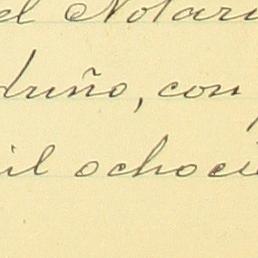 el Notari
duño, con
il ochoci